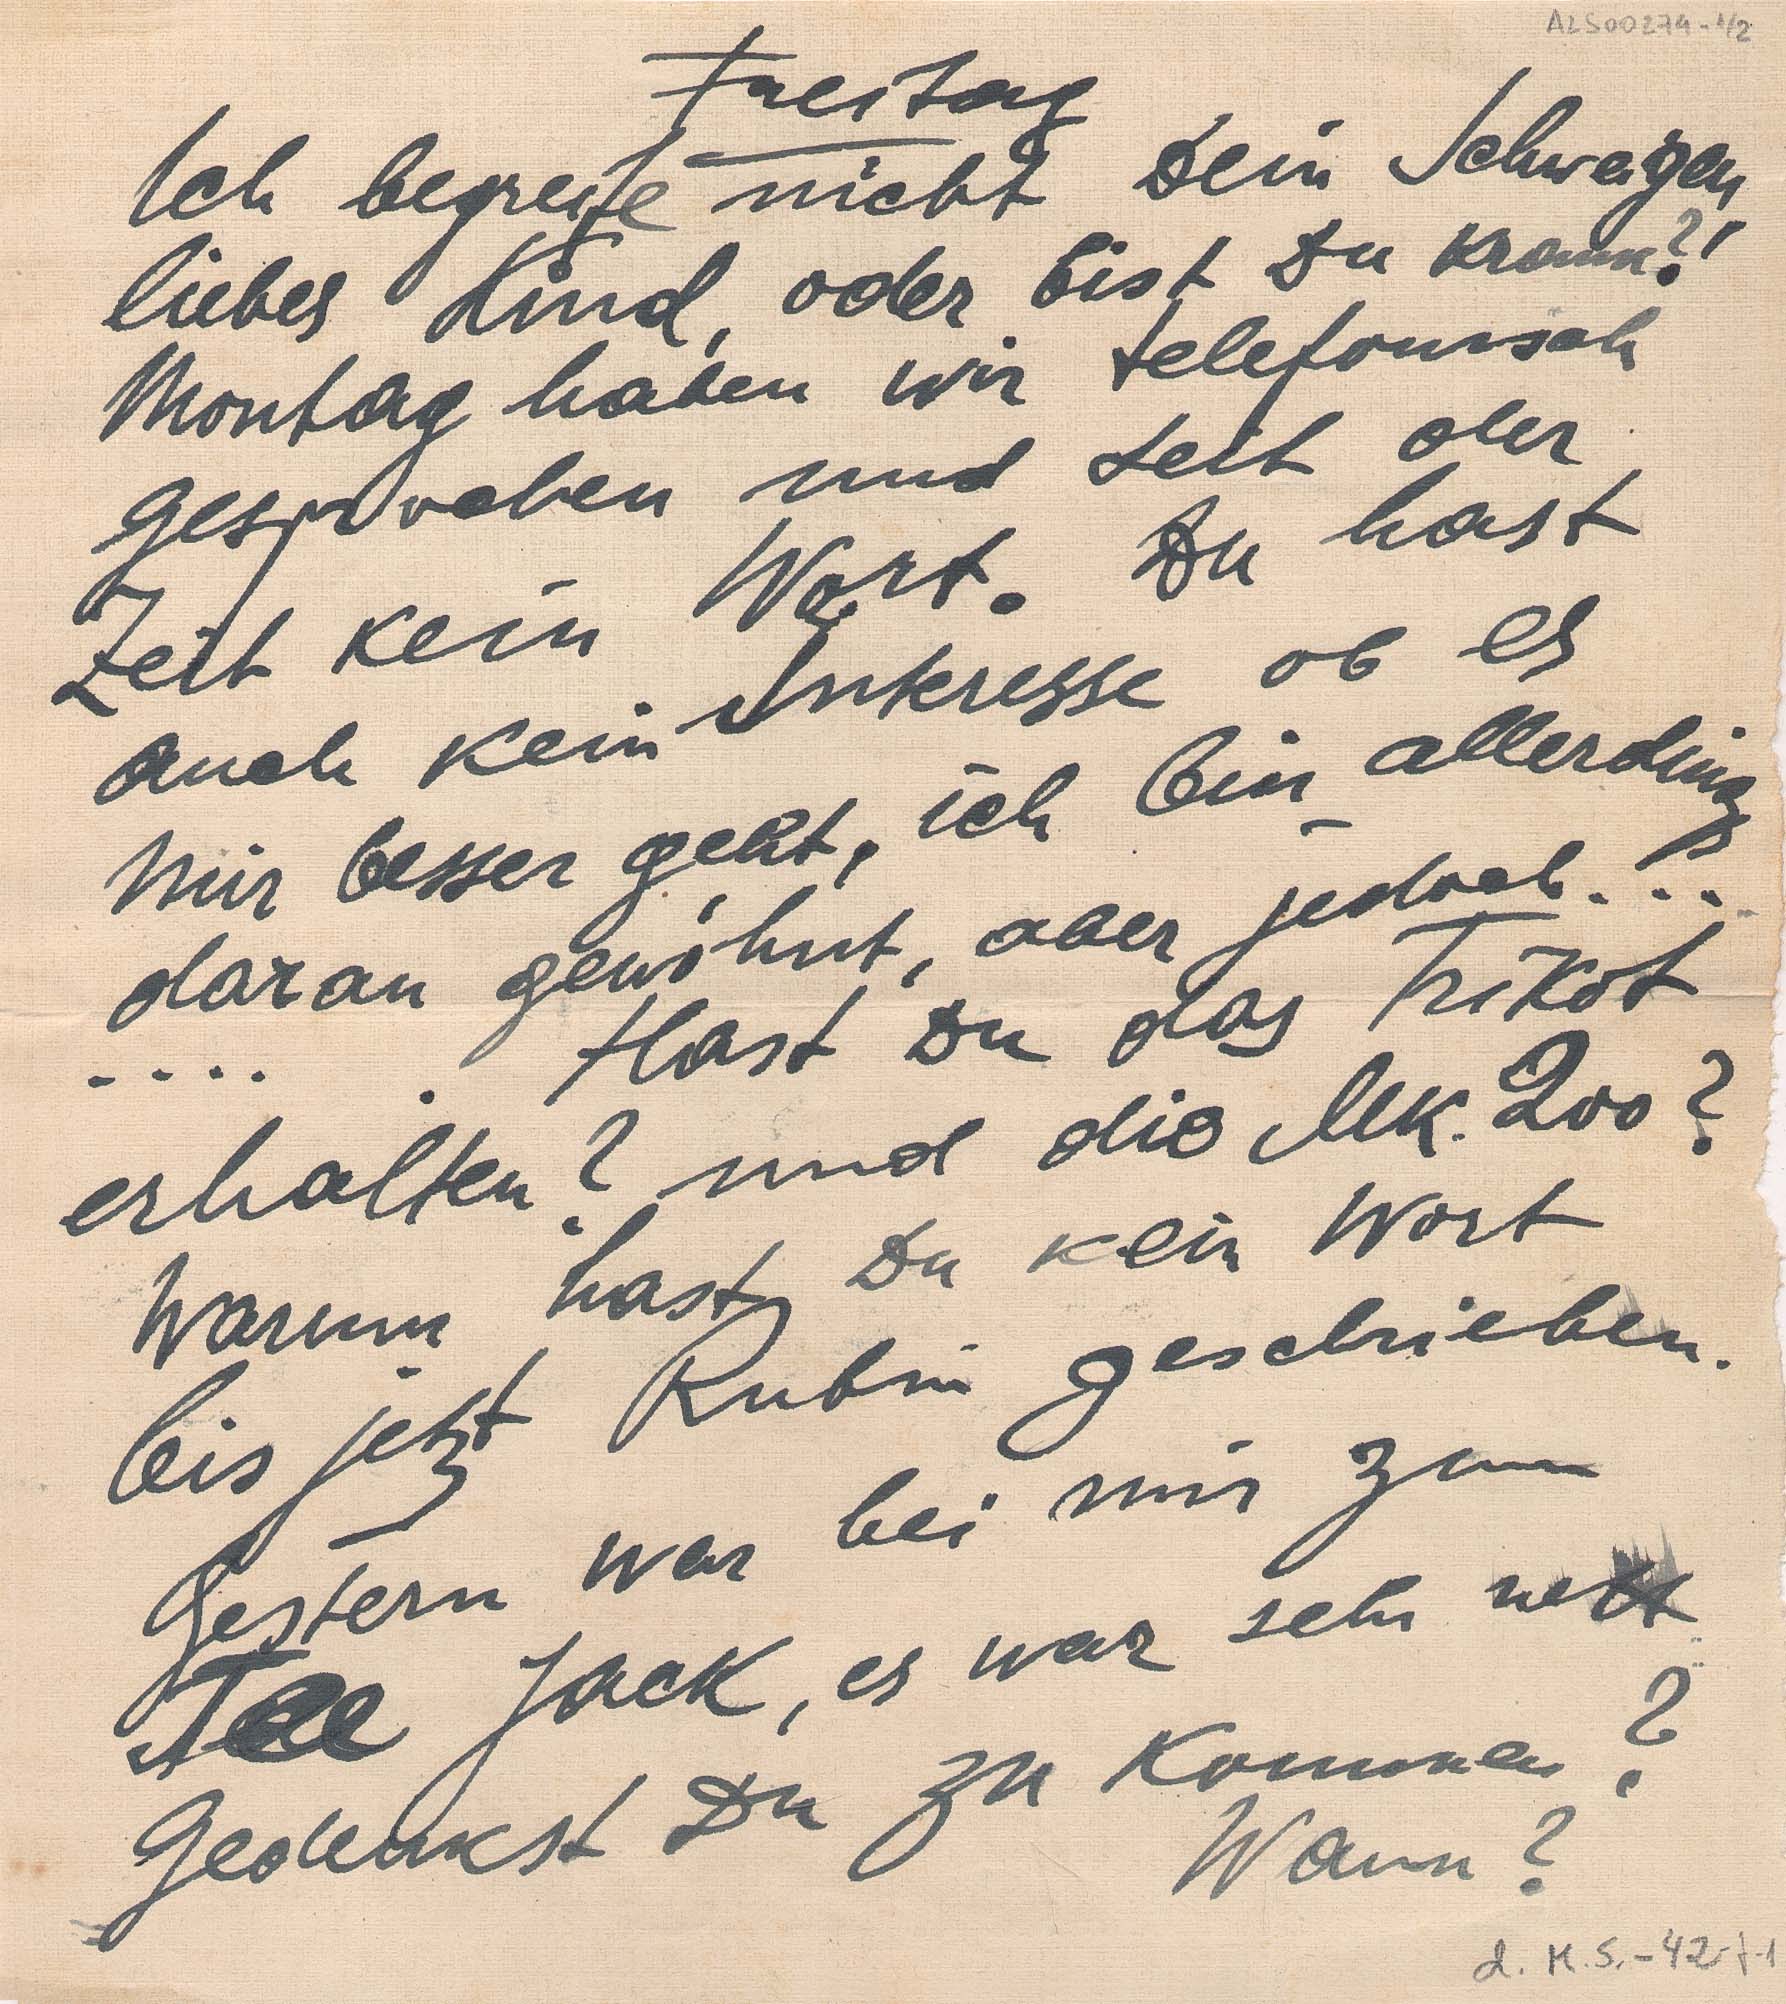 ALS00274-1/2
Freitag
Ich begreife nicht Dein Schweigen,
liebes Kind, oder bist Du krank?
Montag haben wir telefonisch
gesprochen und seit der
Zeit kein Wort. Du hast
auch kein Interesse ob es
mir besser geht, ich bin allerdings
daran gewöhnt, aber jedoch...
..... Hast Du das Trikot
erhalten? und die Mk. 200?
Warum hast Du kein Wort
bis jetzt Rubin geschrieben.
Gestern war bei mir zum
Tee Jack, es war sehr nett
Gedenkst Du zu kommen?
Wann?
2. M.S.-42-/-1